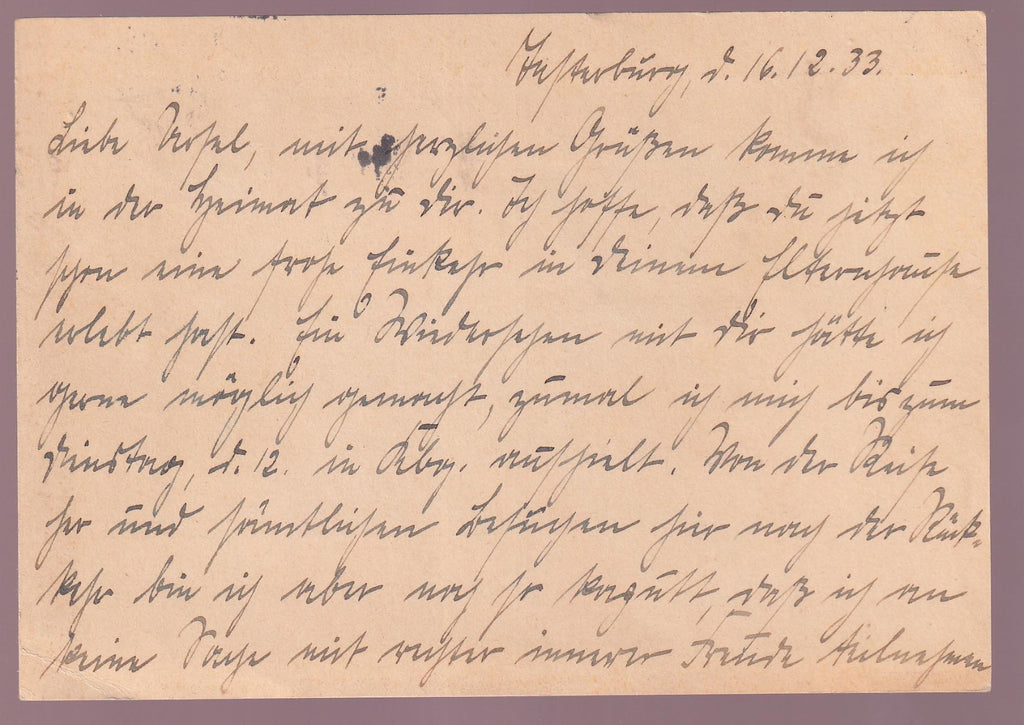 Insterburg, d. 16.12.33.
Liebe Ursel, mit herzlichen Grüßen komme ich
in der Heimat zu Dir. Ich hoffe, daß Du jetzt
schon eine frohe Einkehr in Deinem Elternhause
erlebt hast. Ein Wiedersehen mit Dir hätte ich
gerne möglich gemacht, zumal ich mich bis zum
Dienstag, d. 12. in Kbg. aufhielt. Von der Reise
her und sämtlichen Besuchen hier nach der Rück-
kehr bin ich aber noch so kaputt, daß ich an
keine Sache mit rechter innerer Freude teilnehmen